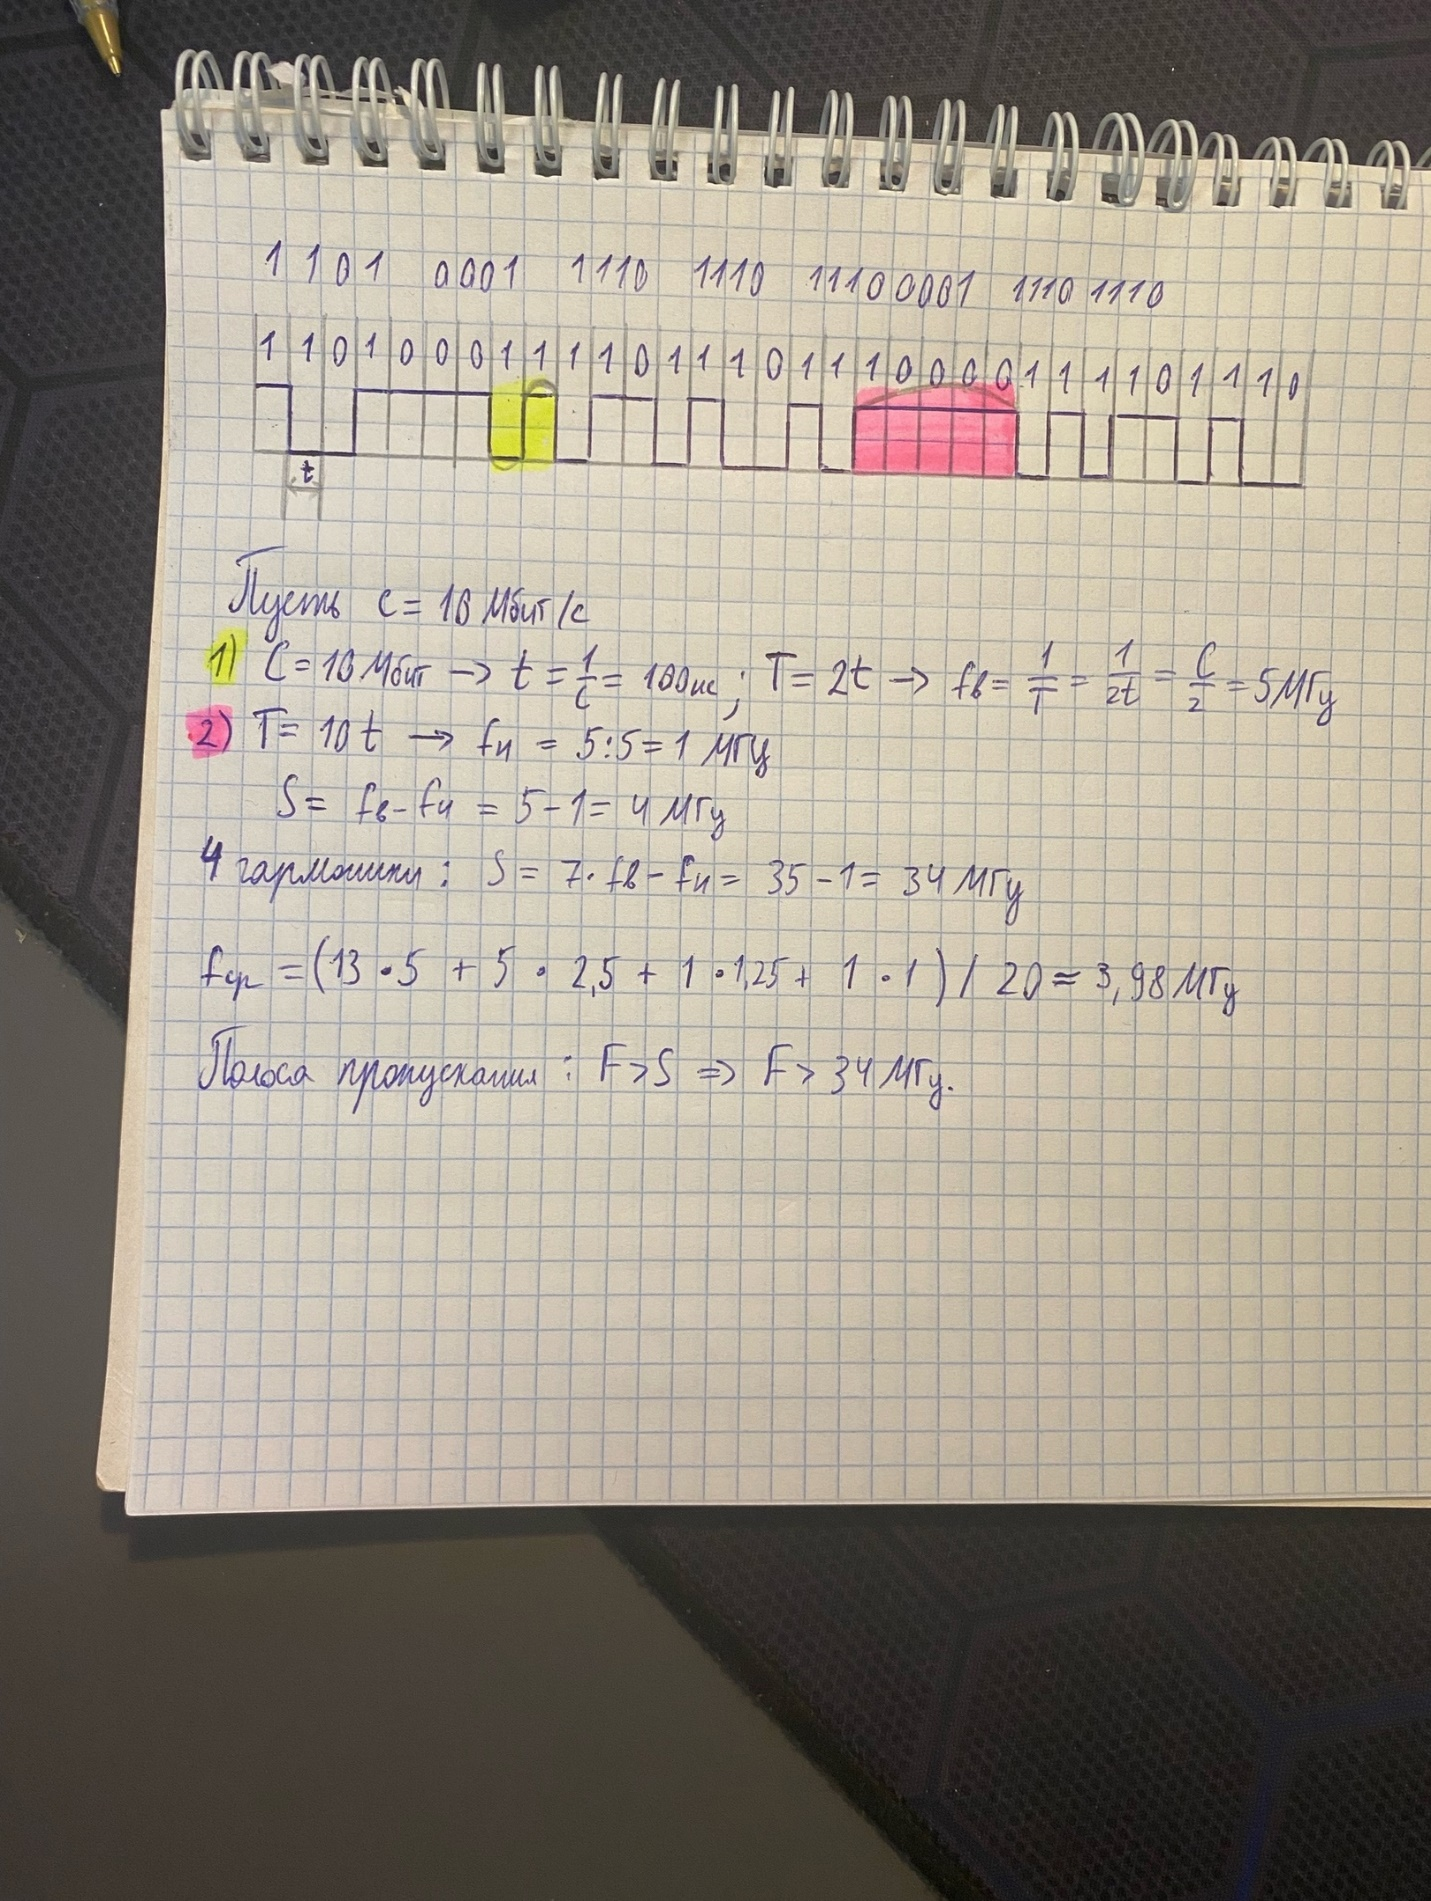 1101 0001 1110 1110 11100001 1110 1110
1 1 0 1 0 0 0 1 1 1 1 0 1 1 1 0 1 1 1 0 0 0 0 1 1 1 1 0 1 1 1 0
t
Пусть c = 10 Мбит/с
1) C = 10 Мбит → t = 1/C = 100 нс; T = 2t → fв = 1/T = 1/2t = C/2 = 5 МГц
2) T = 10t → fн = 5:5 = 1 МГц
S = fв - fн = 5 - 1 = 4 МГц
4 гармоники: S = 7 · fв - fн = 35 - 1 = 34 МГц
fср = (13 · 5 + 5 · 2,5 + 1 · 1,25 + 1 · 1) / 20 ≈ 3,98 МГц
Полоса пропускания: F > S ⇒ F > 34 МГц.